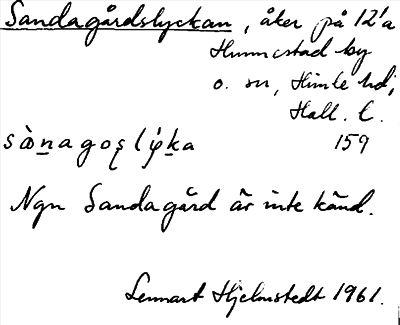 Sandagårdslyckan, åker på 12¹a
Hunnestad by
o. sn, Himle hd,
Hall. l.
159
Ngn Sandagård är inte känd.
Lennart Hjelmstedt 1961.